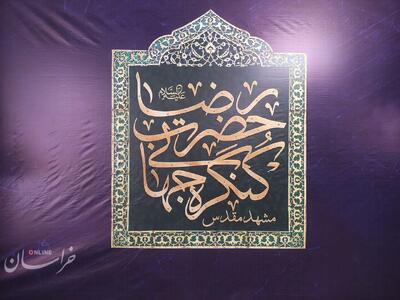 کنگره جهانی
حضرت
رضا
علیه السلام
مشهد مقدس
ONLINE
خراسان